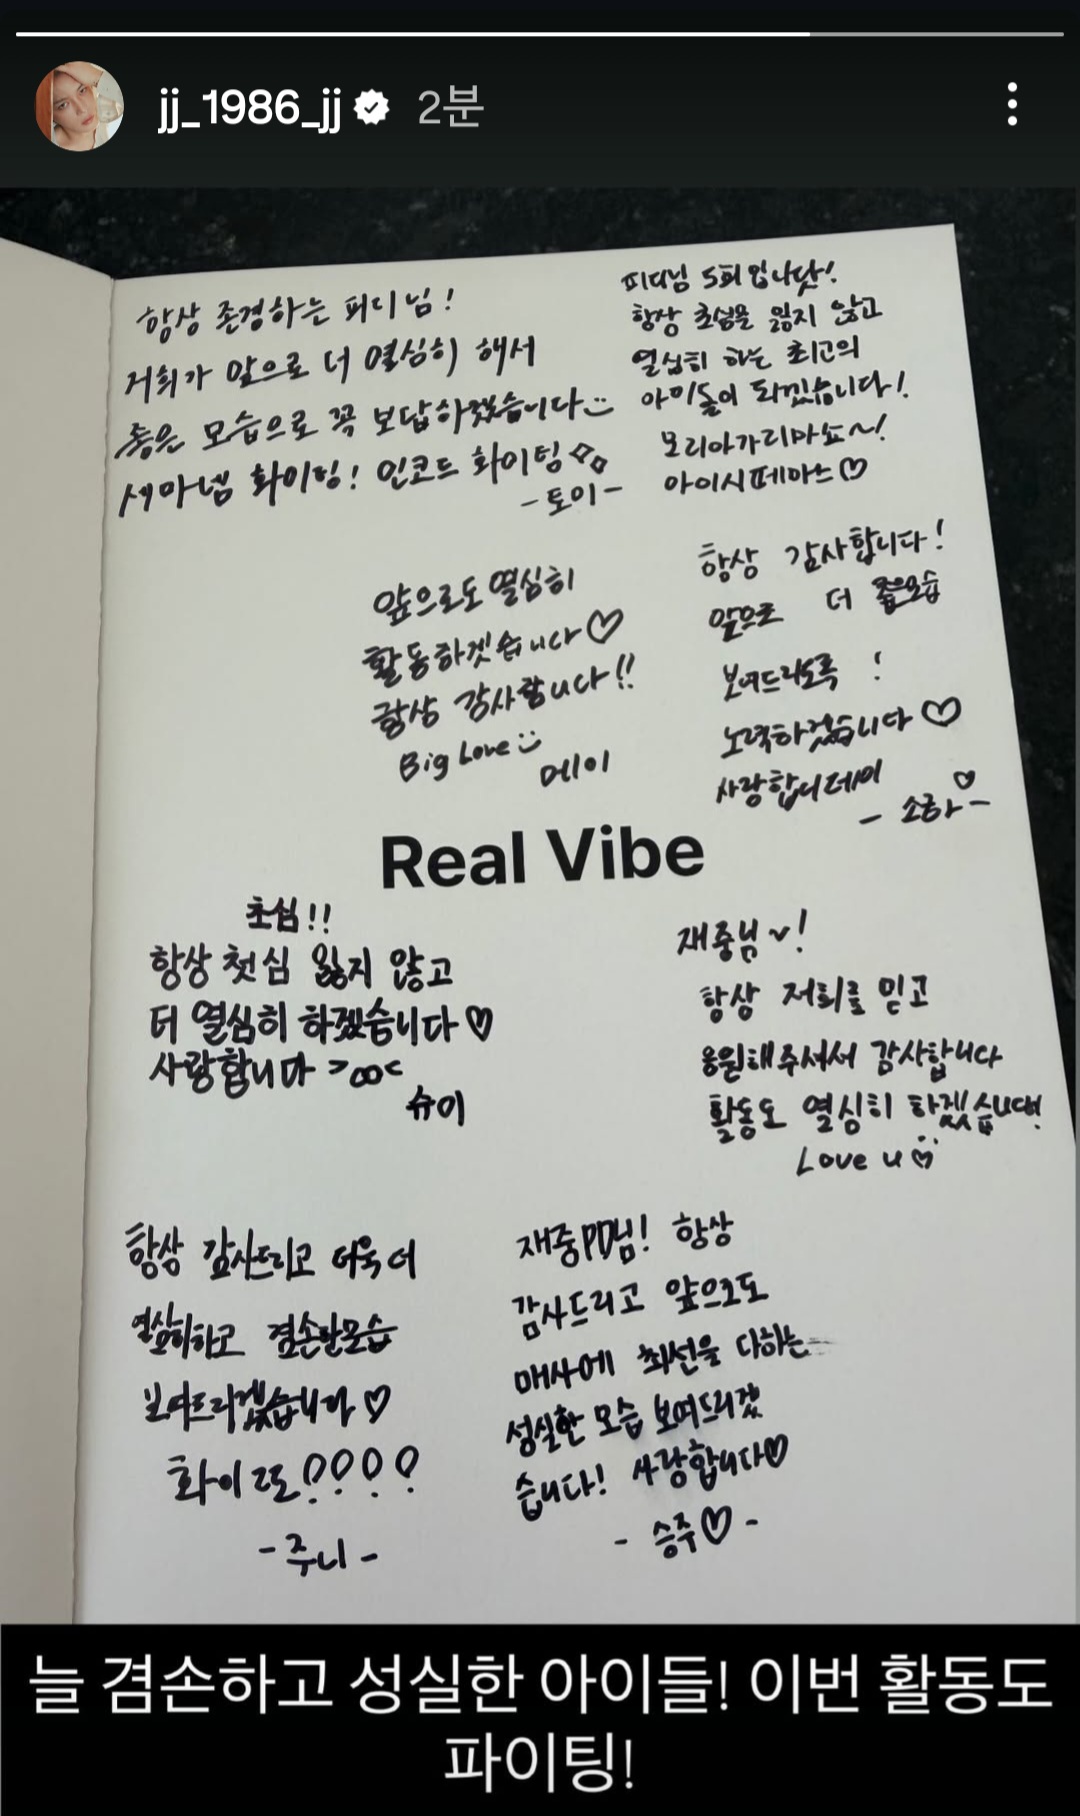 jj_1986_jj 2분
항상 존경하는 피디님!
저희가 앞으로 더 열심히 해서
좋은 모습으로 꼭 보답하겠습니다
세마넴 화이팅! 인코드 화이팅
-토이-
피디님 S희입니닷!
항상 초심을 잃지 않고
열심히 하는 최고의
아이돌이 되겠습니다!
모리아가리마쇼~!
아이시떼마스♡
앞으로도 열심히
활동하겠습니다♡
항상 감사합니다!!
Big Love
메이
항상 감사합니다!
앞으로 더 좋은모습
보여드리도록 !
노력하겠습니다♡
사랑합니데이
- 소하 -
Real Vibe
초심!!
항상 첫심 잃지 않고
더 열심히 하겠습니다♡
사랑합니다
슈이
재중님~!
항상 저희를 믿고
응원해주셔서 감사합니다
활동도 열심히 하겠습니다!
Love u
항상 감사드리고 더욱더
열심히하고 겸손한모습
보여드리겠습니다♡
화이또
-주니-
재중PD님! 항상
감사드리고 앞으로도
매사에 최선을 다하는
성실한 모습 보여드리겠
습니다! 사랑합니다♡
- 승주♡ -
늘 겸손하고 성실한 아이들! 이번 활동도
파이팅!